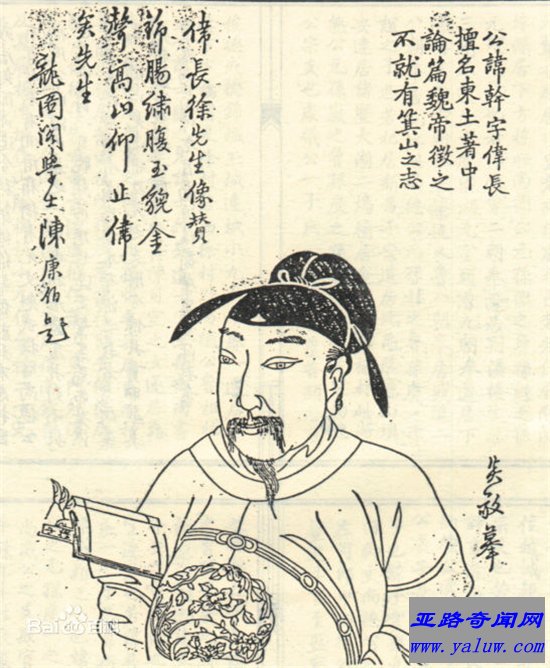 公諱幹字偉長
擅名東土著中
論篇魏帝徵之
不就有箕山之志
偉長徐先生像贊
錦腸繡腹玉貌金
聲高山仰止偉
矣先生
龍圖閣學士陳康伯題
吳敬摹
Bai 百科
亚路奇闻网
www.yaluw.com